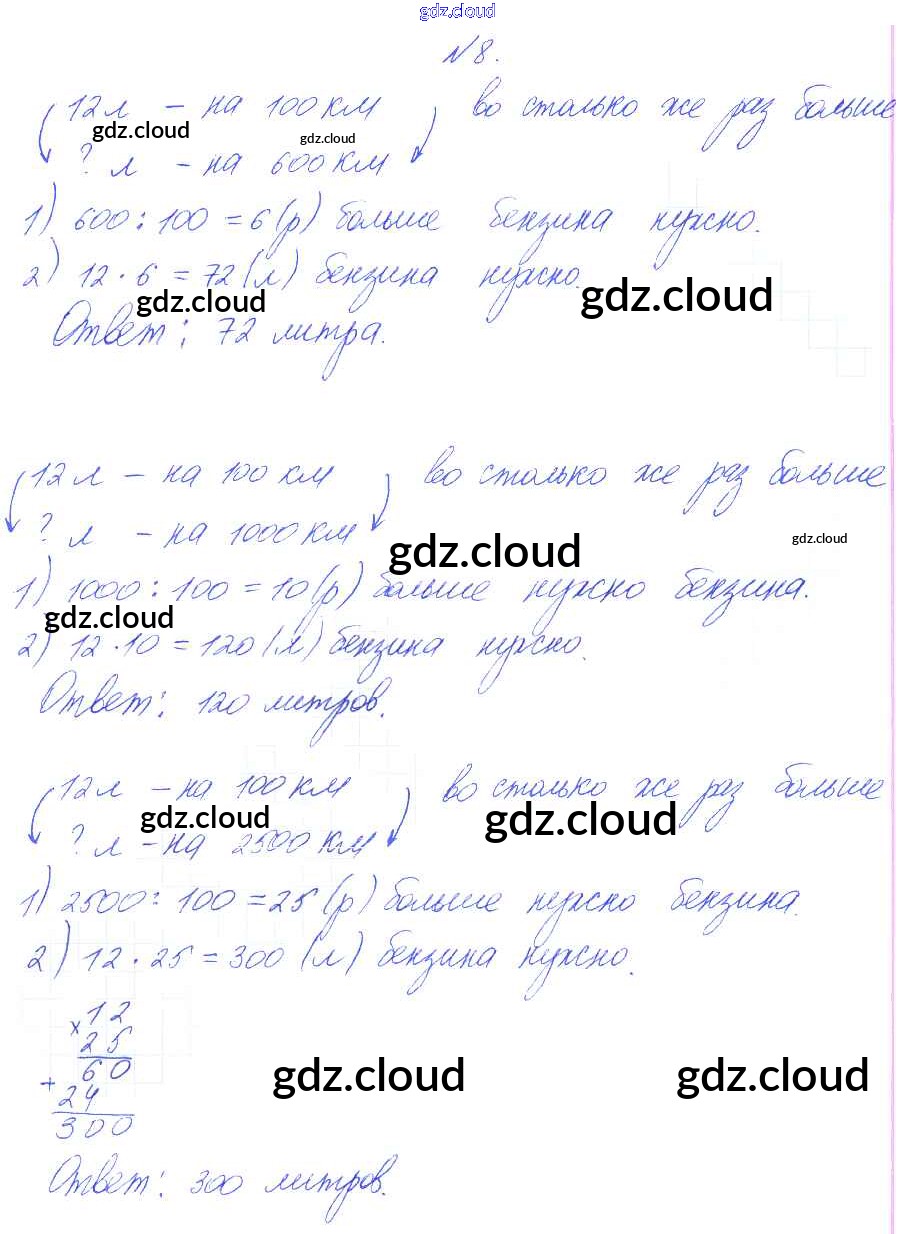 gdz.cloud
№8.
12 л – на 100 км во столько же раз больше
gdz.cloud gdz.cloud
? л – на 600 км
1) 600 : 100 = 6 (р) больше бензина нужно.
2) 12 · 6 = 72 (л) бензина нужно.
gdz.cloud gdz.cloud
Ответ: 72 литра.
12 л – на 100 км во столько же раз больше
? л – на 1000 км
gdz.cloud gdz.cloud
1) 1000 : 100 = 10 (р) больше нужно бензина.
gdz.cloud
2) 12 · 10 = 120 (л) бензина нужно.
Ответ: 120 литров.
12 л – на 100 км во столько же раз больше
gdz.cloud gdz.cloud
? л – на 2500 км
1) 2500 : 100 = 25 (р) больше нужно бензина.
2) 12 · 25 = 300 (л) бензина нужно.
× 12
25
60
+ 24
300
gdz.cloud gdz.cloud
Ответ: 300 литров.